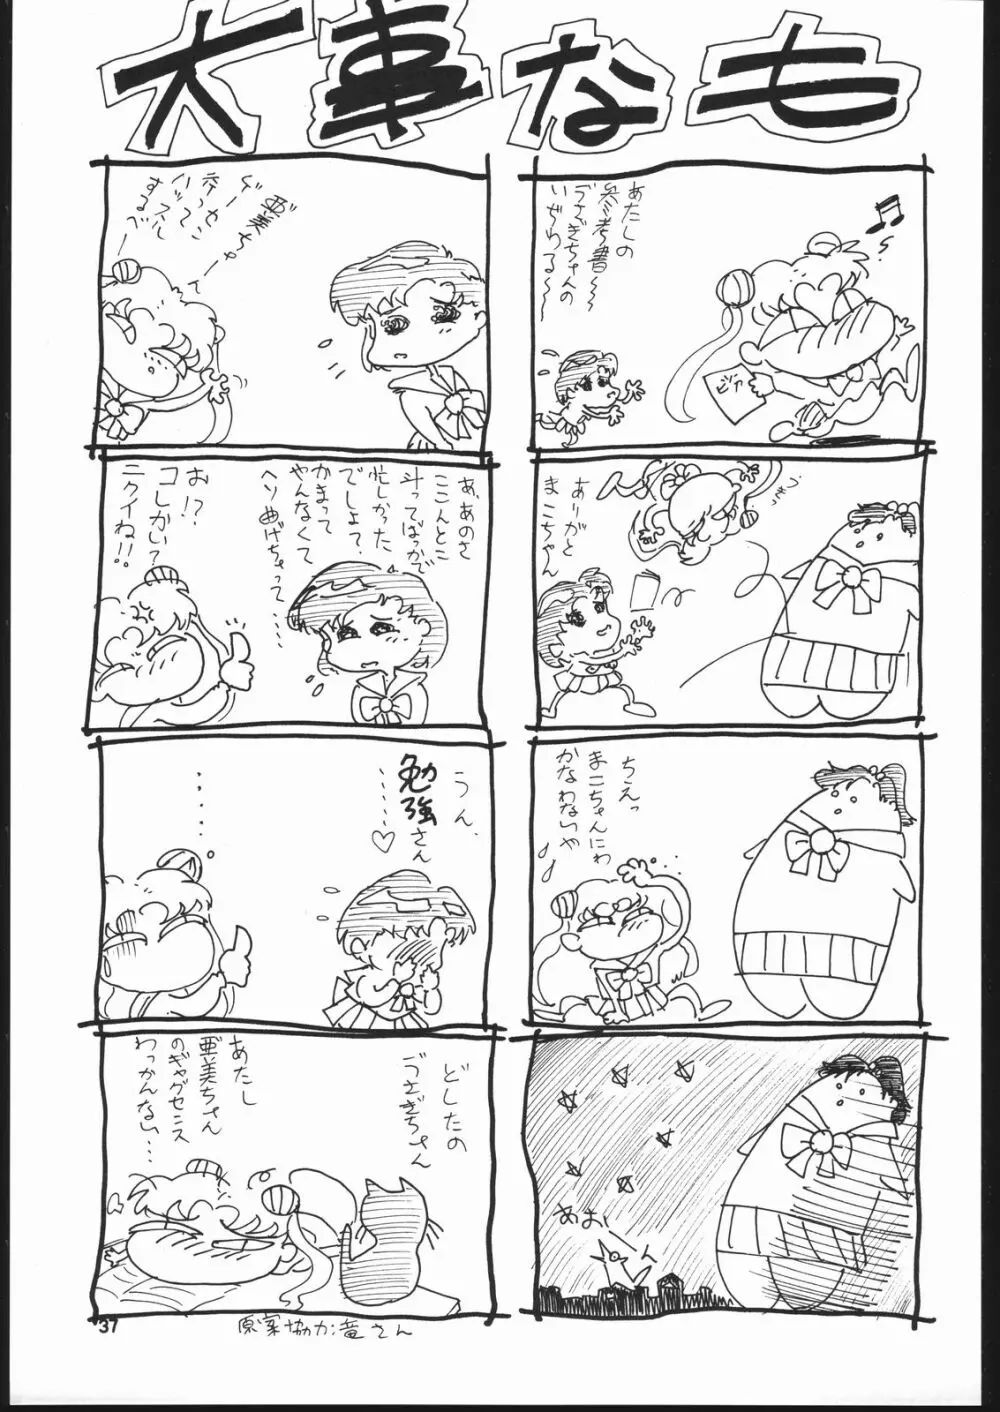 大事なも
あたしの
参考書〜〜
うさぎちゃんの
いぢわる〜〜
ありがと
まこちゃん
ちえっ
まこちゃんにわ
かなわないや
あお〜ん
亜美ちゃーん
するべー
あ、あのさ
ここんとこ
斗ってばっかで
忙しかった
でしょ?
かまって
やんなくて
ヘソ曲げちゃって……
お!?
コしかいて
ニクイね!!
うん、
勉強さん
……♡
・・・・・
どしたの
うさぎちゃん
あたし
亜美ちゃん
のギャグセンス
わっかんない…
37
原案協力:竜さん